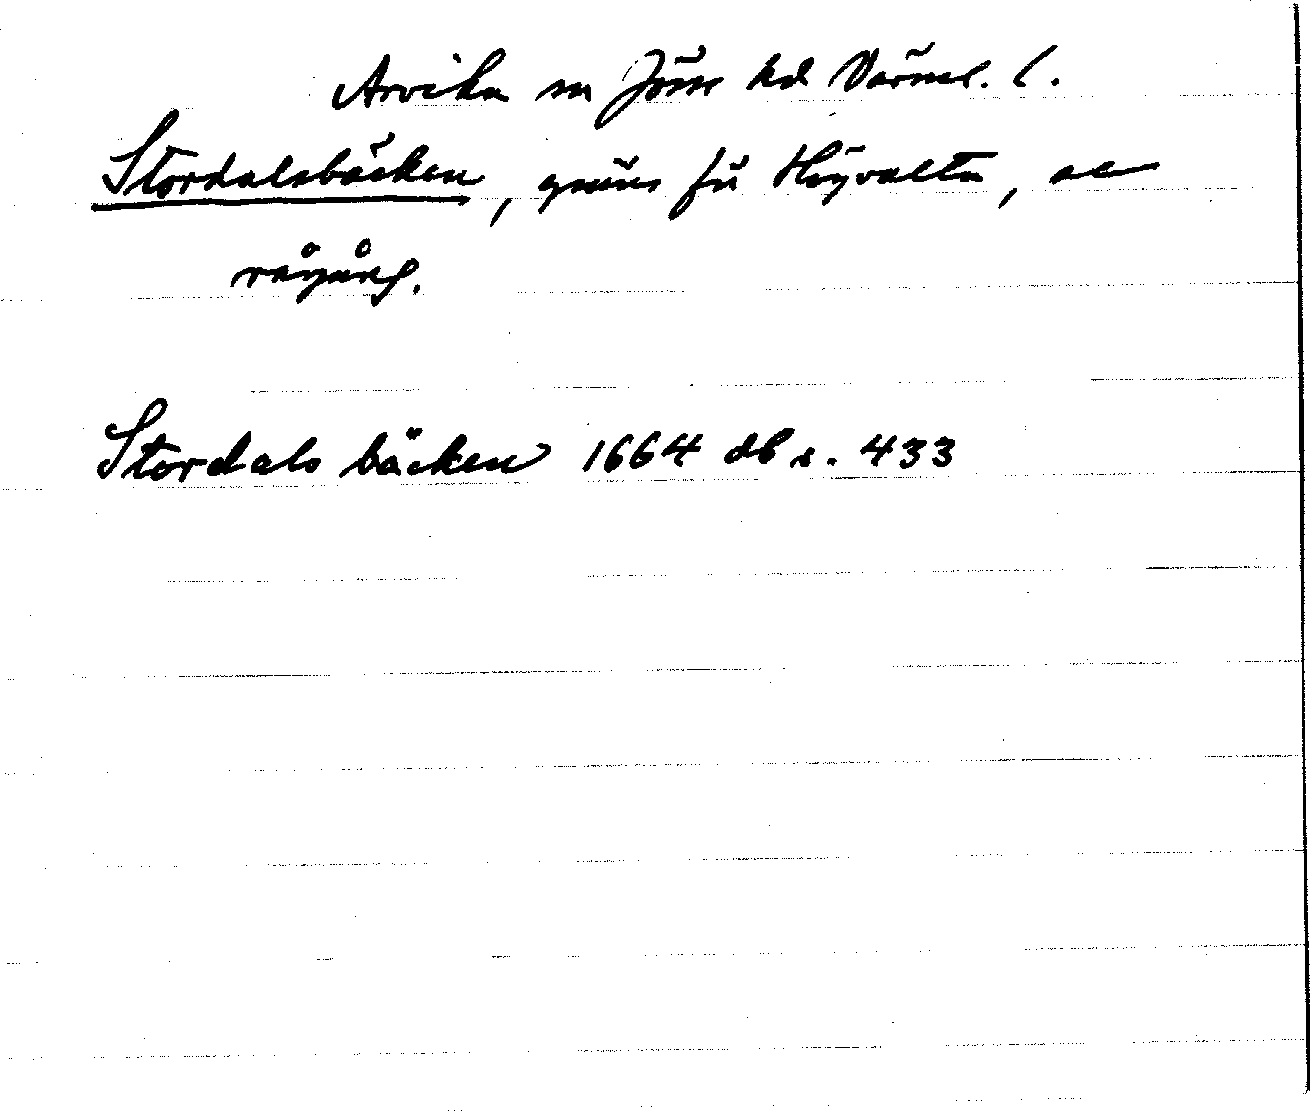 Arvika sn Jösse hd Värml. l.
Stordalsbäcken, gräns för Högvalta, se
rågång.
Stordals bäcken 1664 db s. 433